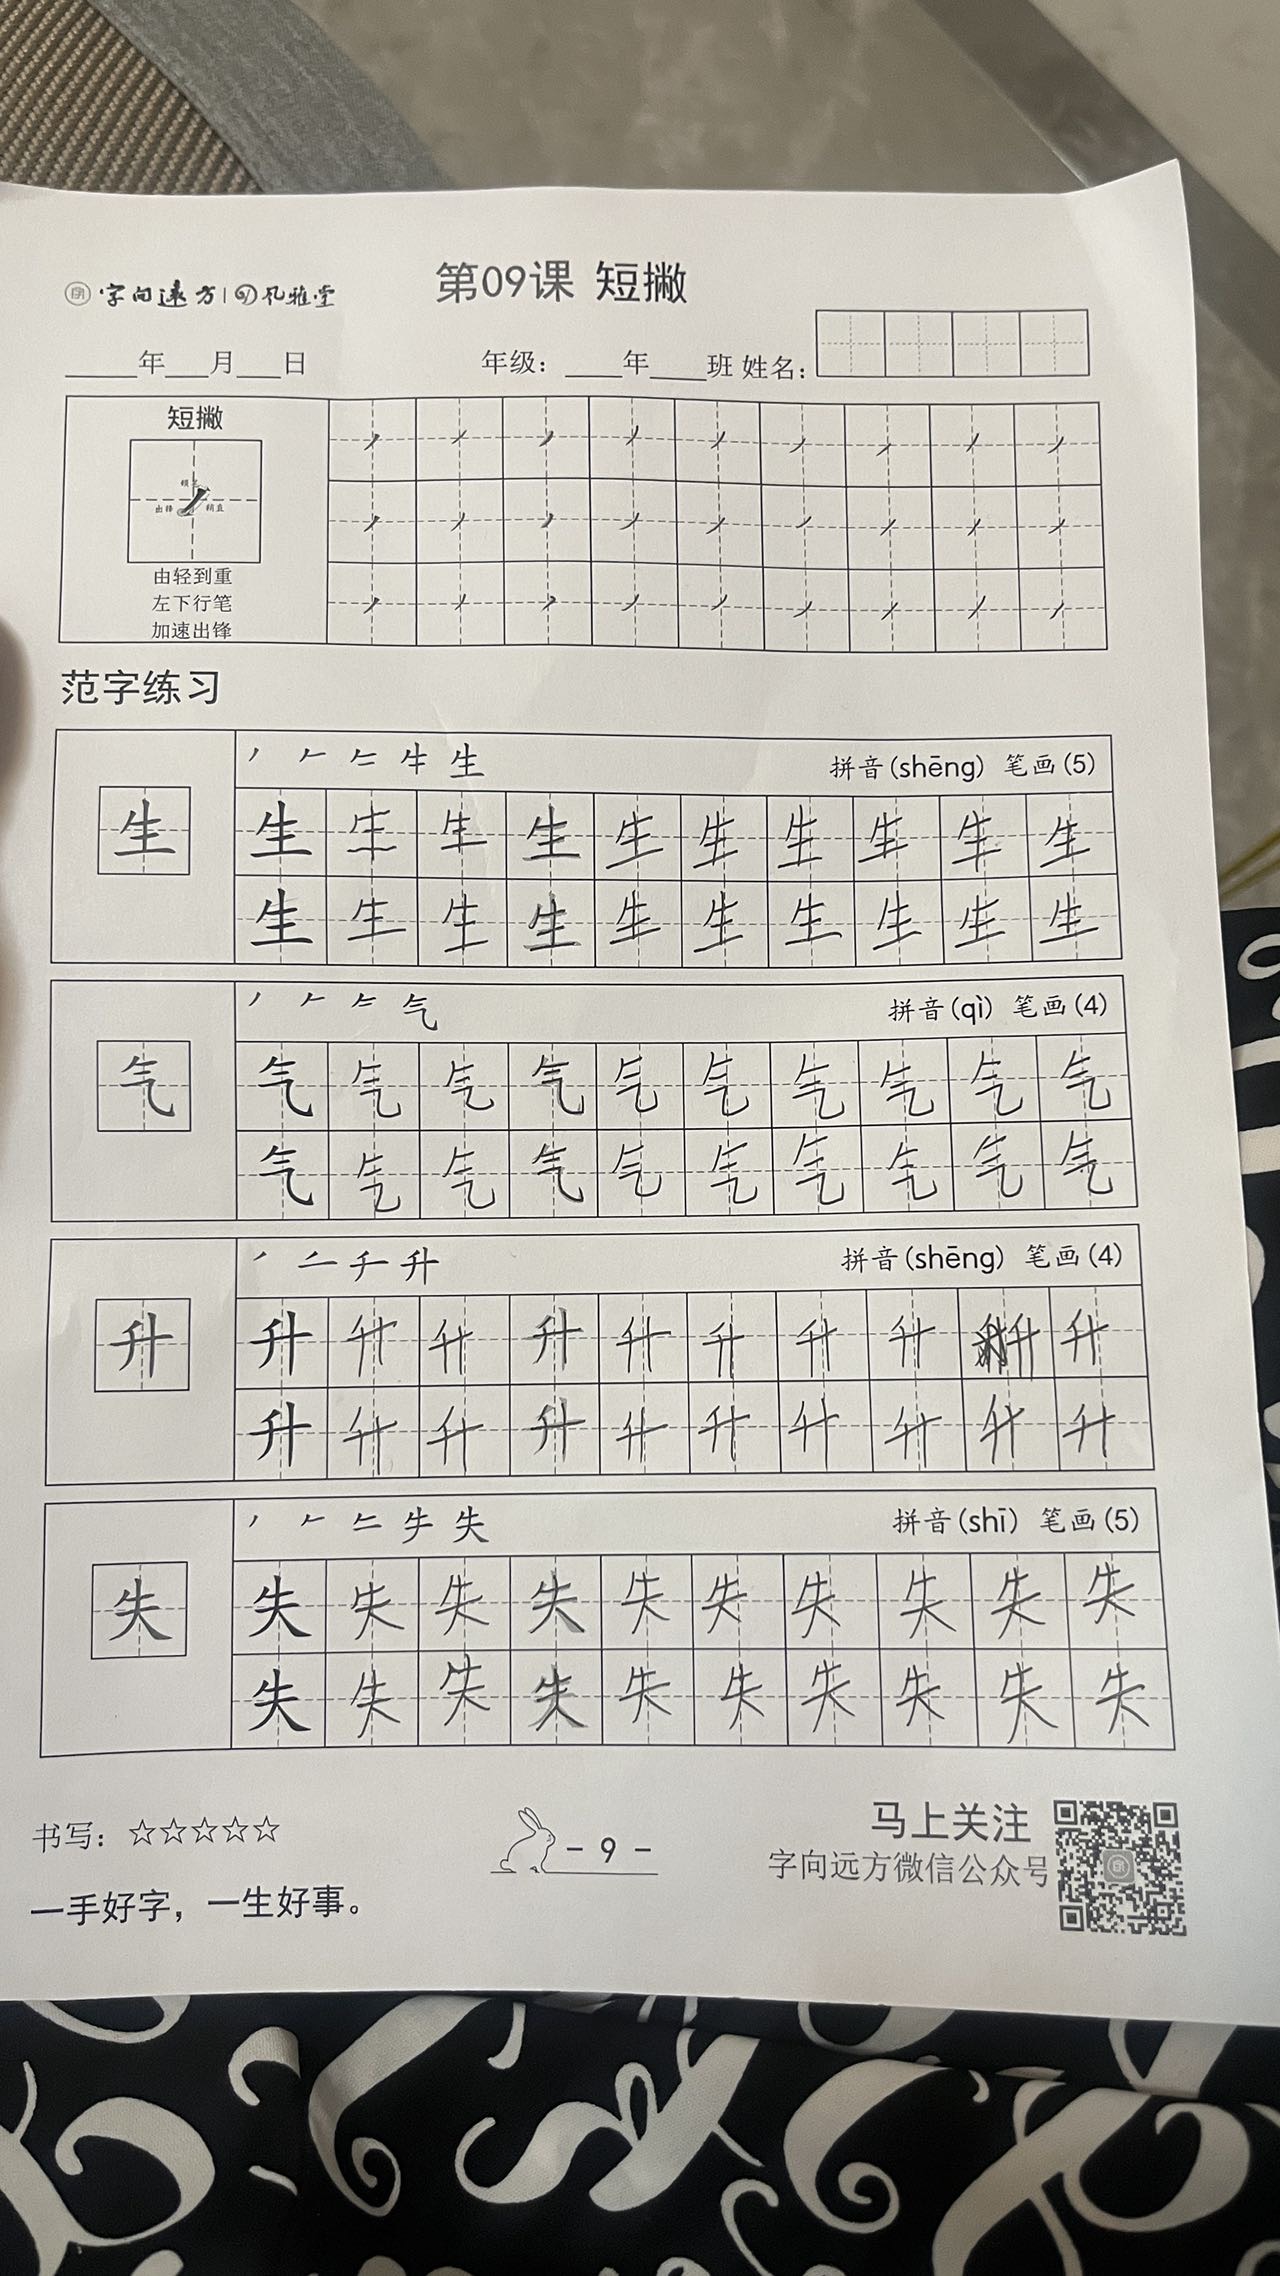 字向远方 | 孔雅堂
第09课 短撇
年 月 日 年级： 年 班 姓名：
短撇
顿笔
出锋 稍直
由轻到重
左下行笔
加速出锋
范字练习
生 拼音(shēng) 笔画(5)
生 生 生 生 生 生 生 生 生 生 生
生 生 生 生 生 生 生 生 生 生
气 拼音(qì) 笔画(4)
气 气 气 气 气 气 气 气 气 气 气
气 气 气 气 气 气 气 气 气 气
升 拼音(shēng) 笔画(4)
升 升 升 升 升 升 升 升 升 升 升
升 升 升 升 升 升 升 升 升 升
失 拼音(shī) 笔画(5)
失 失 失 失 失 失 失 失 失 失 失
失 失 失 失 失 失 失 失 失 失
书写：☆☆☆☆☆
- 9 -
马上关注
字向远方微信公众号
一手好字，一生好事。